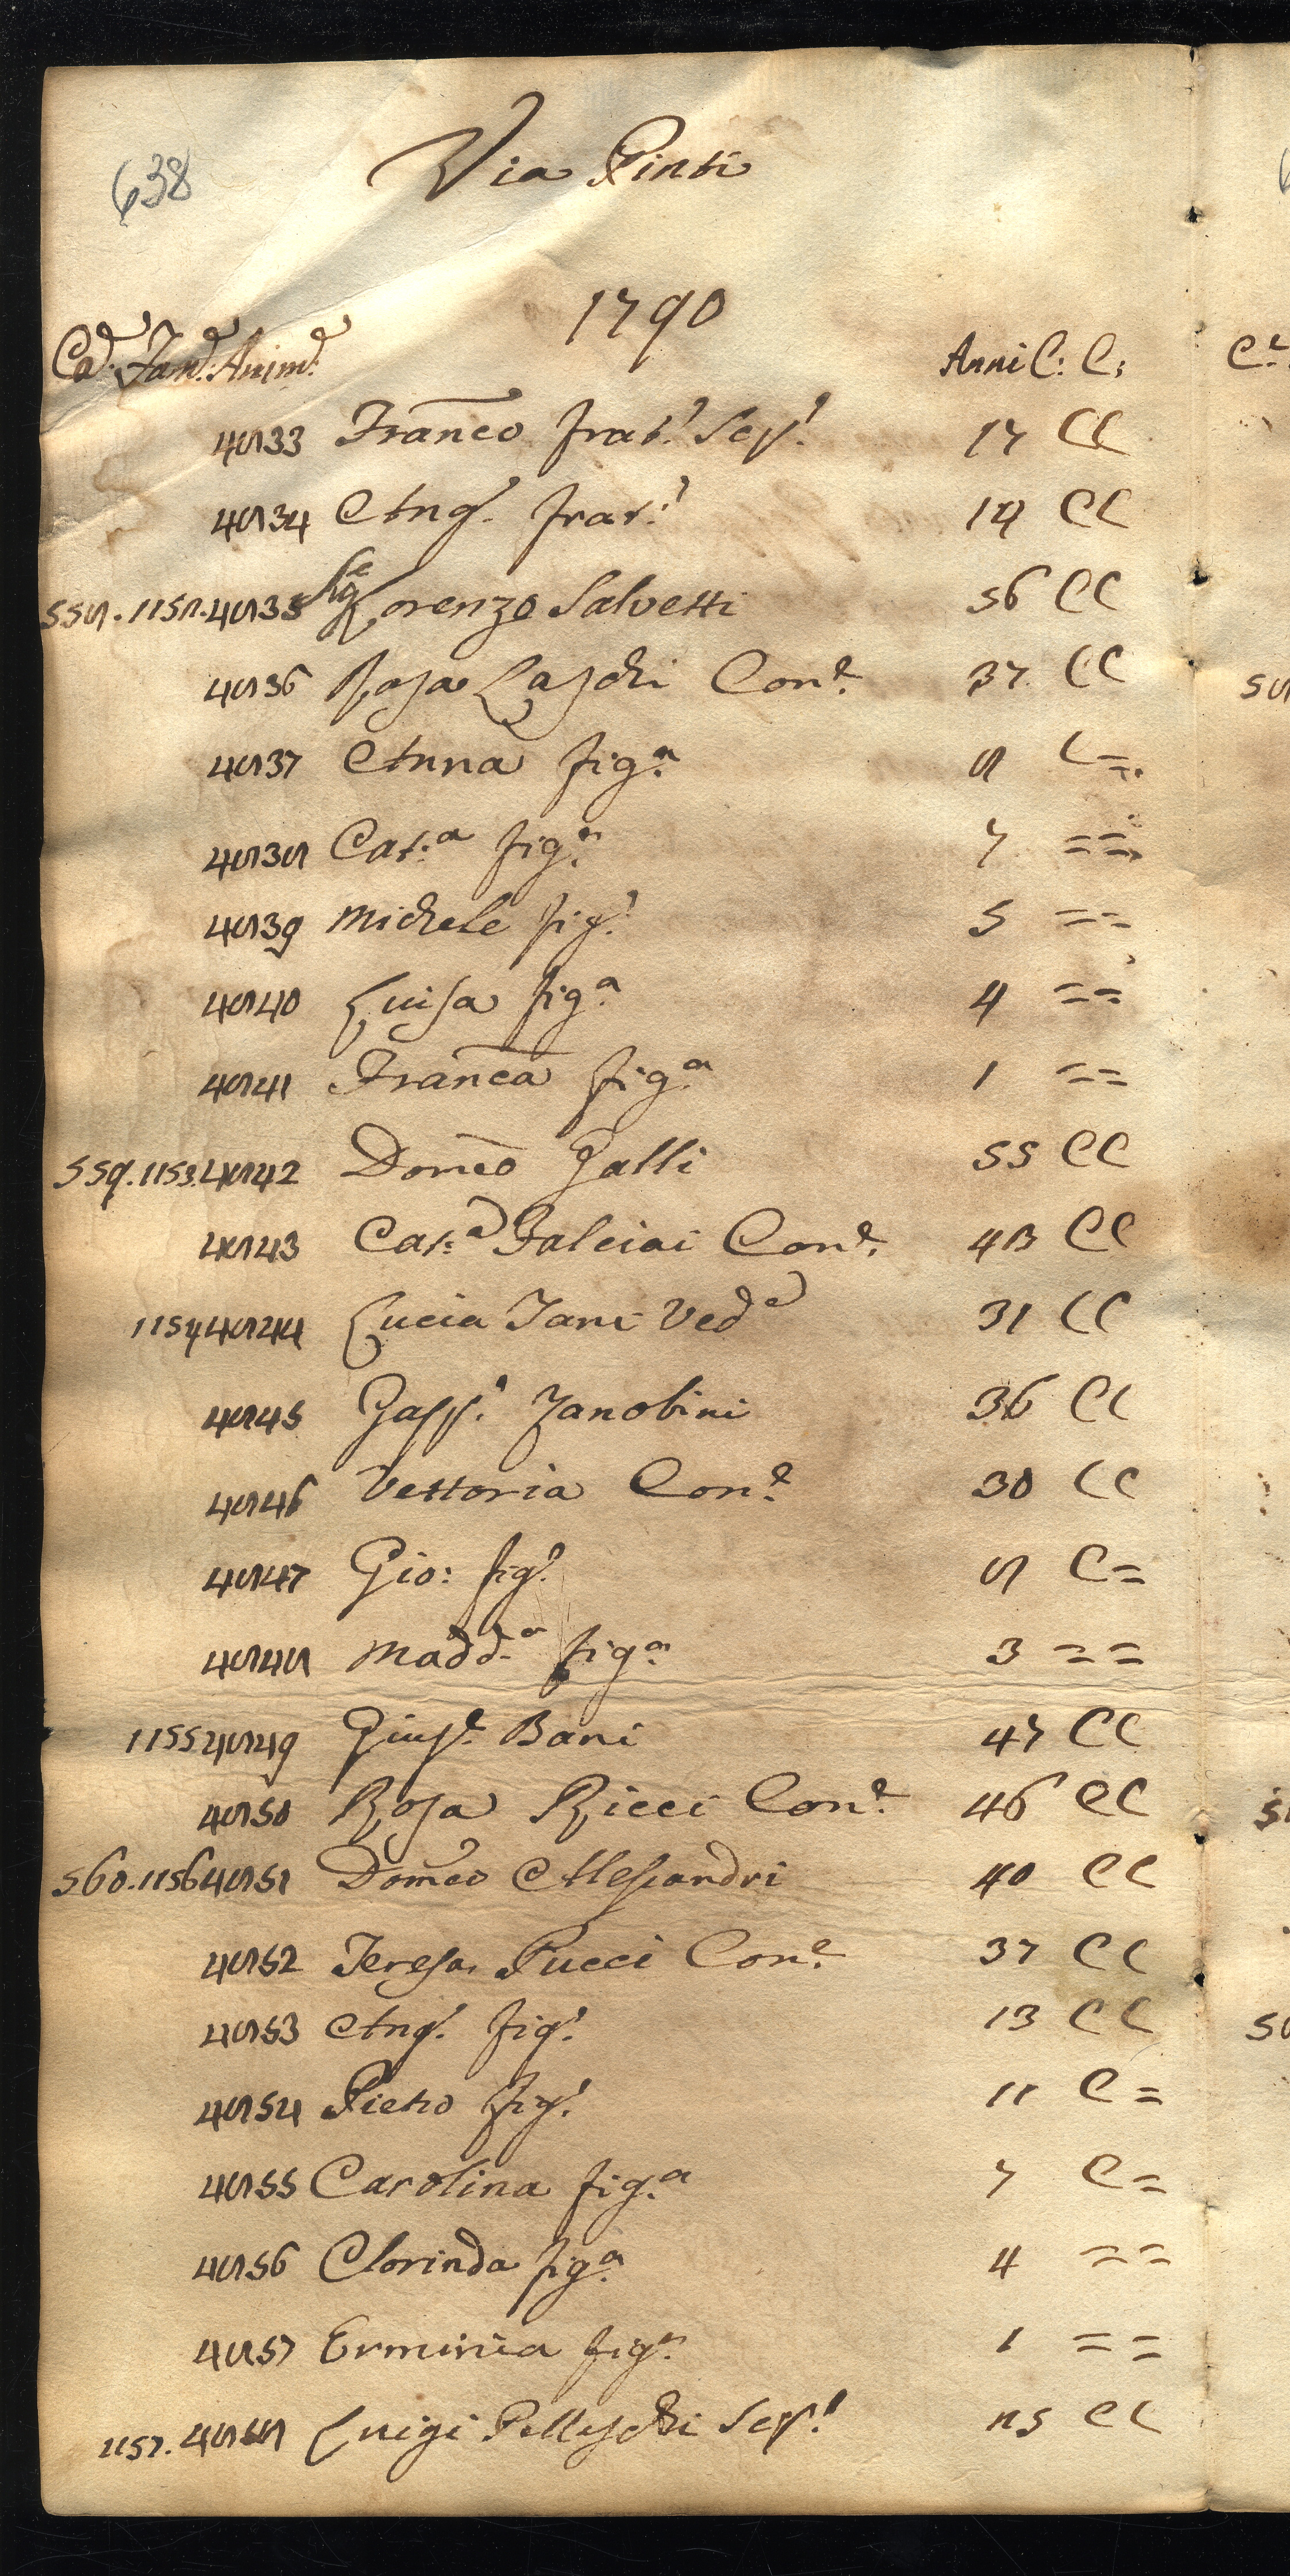 638
Via Pinti
1790
Ca.e Fam.e Anim.e Anni C: C:
4833 Franco frat.o Sep.o 17 CC
4834 Ang.o frat.o 14 CC
558. 1152. 4835 Sig.e Lorenzo Salvetti 56 CC
4836 Rosa Laschi Con.e 37 CC
4837 Anna fig.a 8 C=
4838 Cat.a fig.a 7 ==
4839 Michele fig.o 5 ==
4840 Luisa fig.a 4 ==
4841 Franca fig.a 1 ==
559. 1153. 4842 Domco Galli 55 CC
4843 Cat.a Falciai Con.e 43 CC
1154 4844 Lucia Tani Ved.a 31 CC
4845 Gasp.o Zanobini 36 CC
4846 Vettoria Con.e 30 CC
4847 Gio: fig.o 8 C=
4848 Madd.a fig.a 3 ==
1155 4849 Gius.e Bani 47 CC
4850 Rosa Ricci Con.e 46 CC
560. 1156 4851 Domco Alessandri 40 CC
4852 Teresa Pucci Con.e 37 CC
4853 Ang.o fig.o 13 CC
4854 Pietro fig.o 11 C=
4855 Carolina fig.a 7 C=
4856 Clorinda fig.a 4 ==
4857 Erminia fig.a 1 ==
1157. 4858 Luigi Pelleschi Sep.o 25 CC